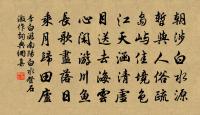 朝涉白水源
暫與人俗疏
島嶼佳境色
江天涵清虛
目送去海雲
心閑游川魚
長歌盡落日
乘月歸田廬
李白游南陽白水登石
激作詞典網集